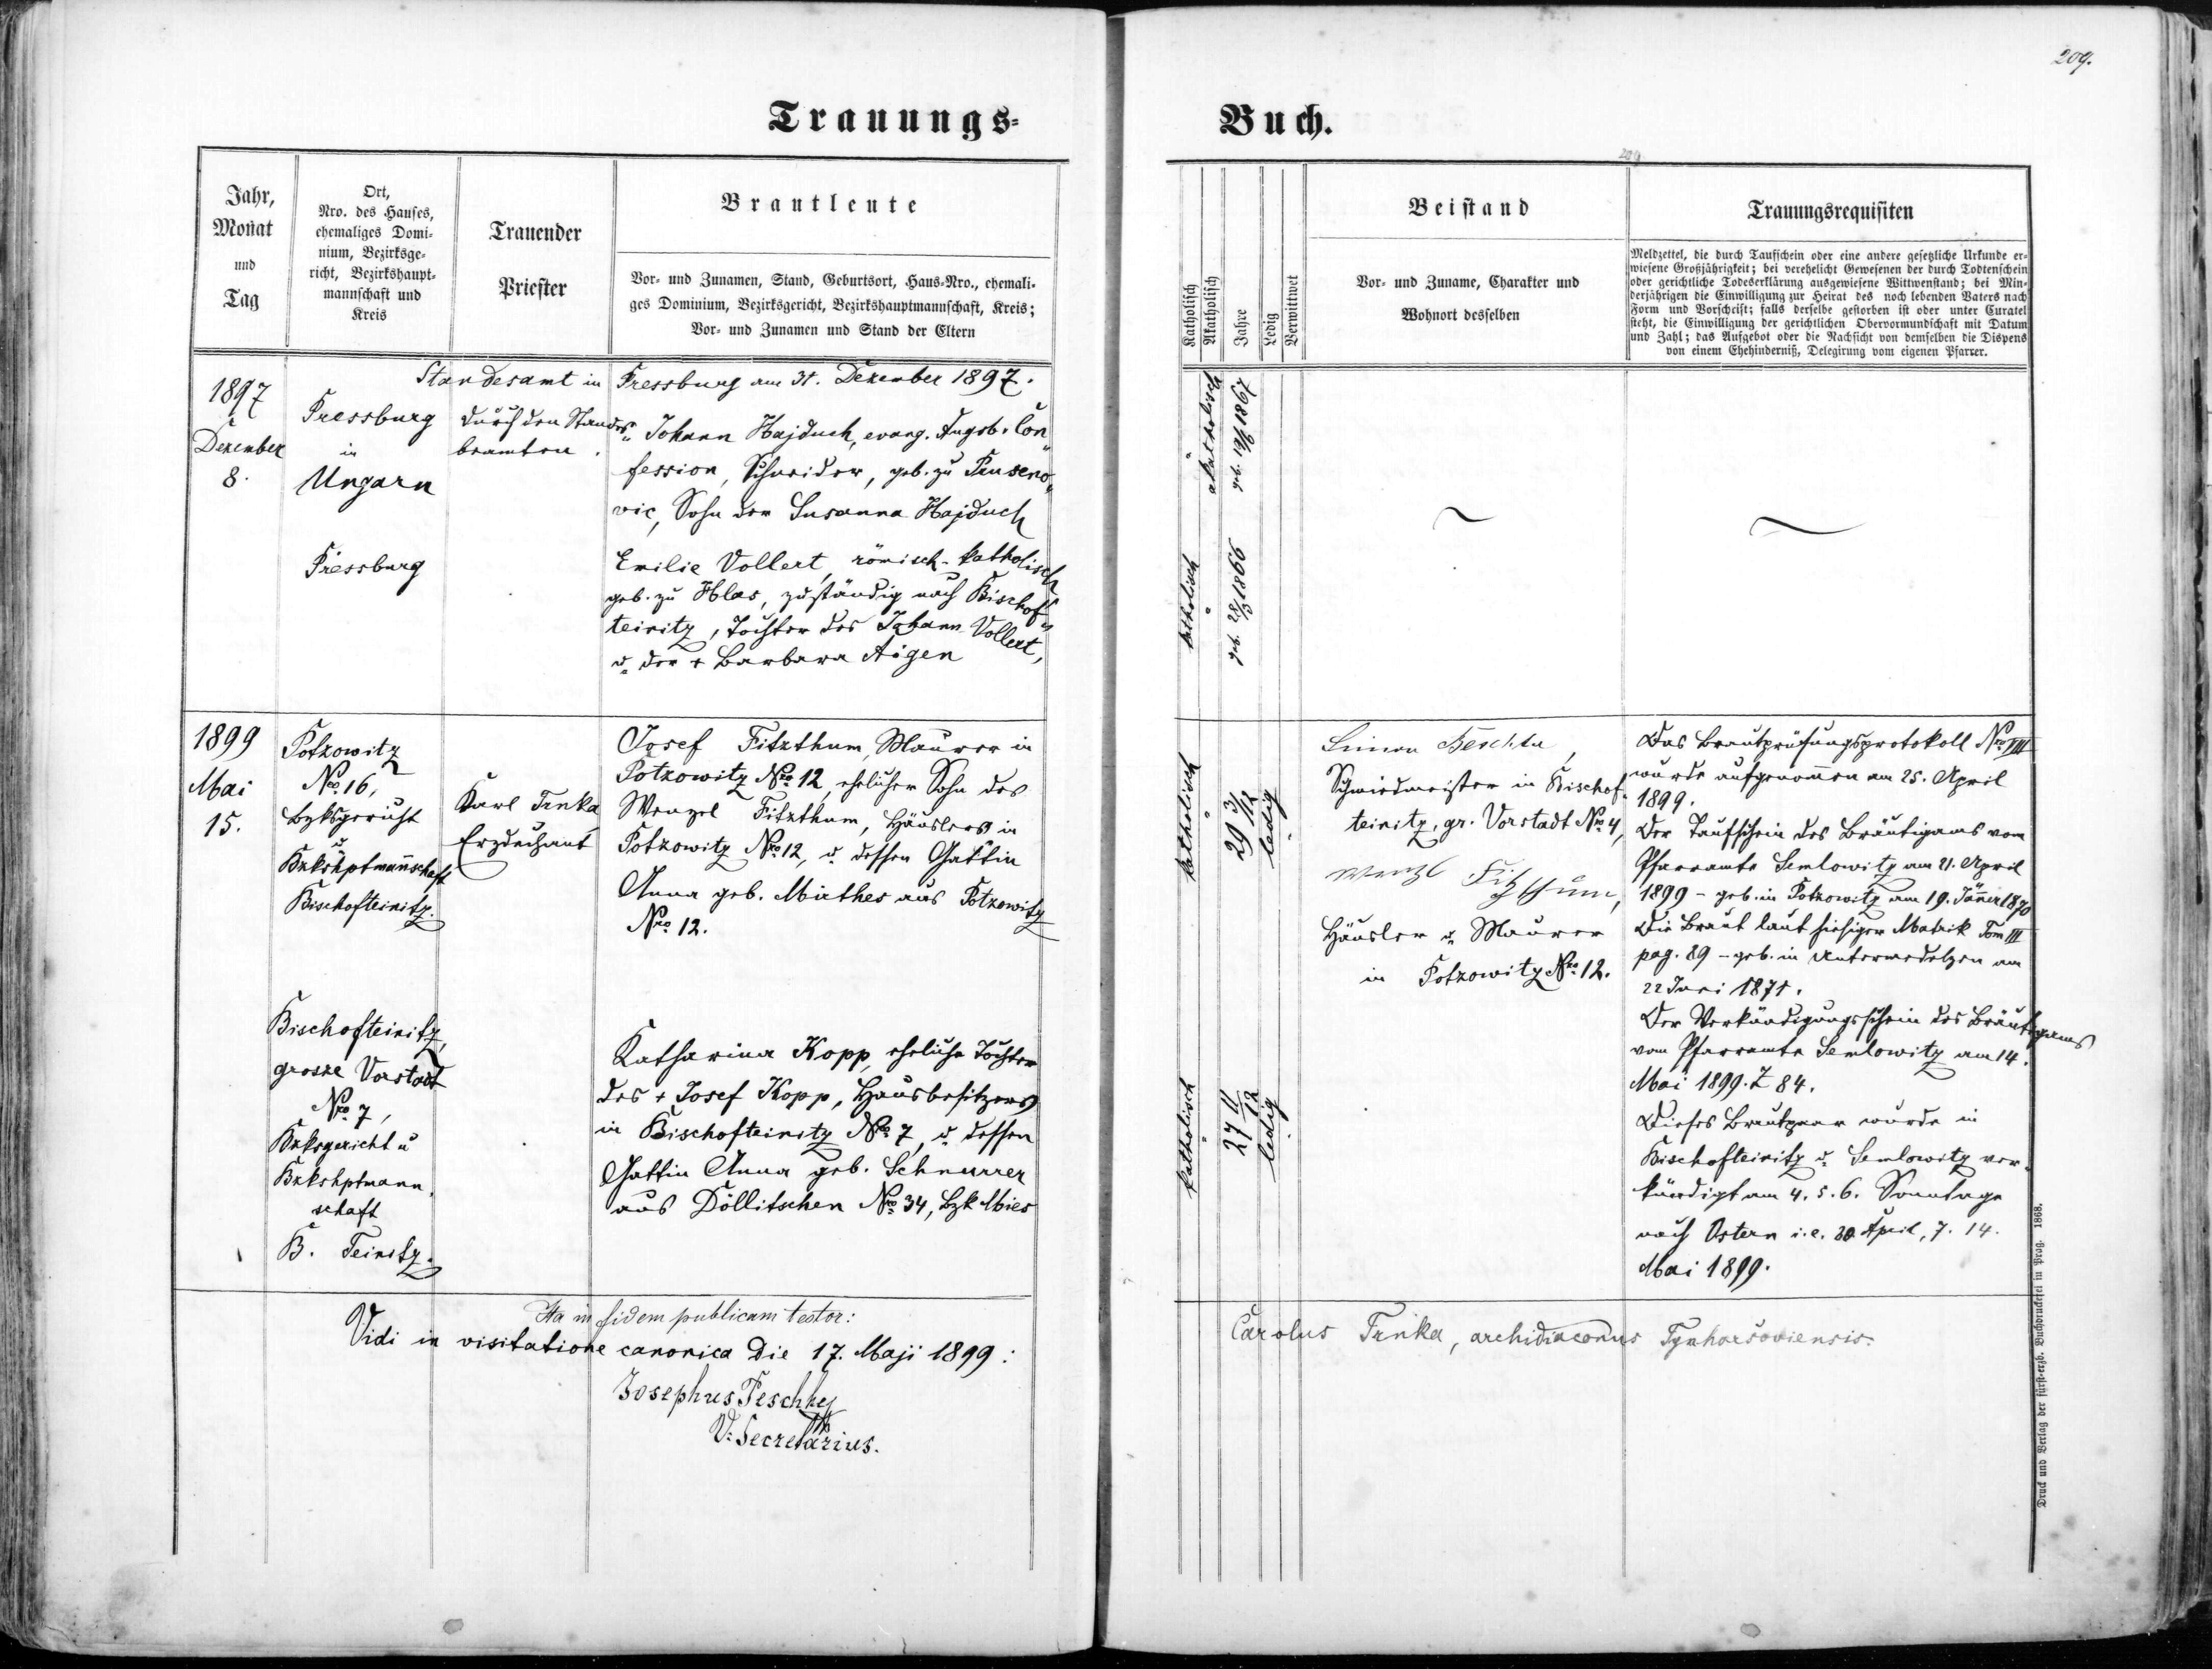 209.
Trauungs=
Buch.
209
Jahr,
Monat
und
Tag
Ort,
Nro. des Hauses,
ehemaliges Domi-
nium, Bezirksge-
richt, Bezirkshaupt-
mannschaft und
Kreis
Trauender
Priester
Brautleute
Vor- und Zunamen, Stand, Geburtsort, Haus-Nro., ehemali-
ges Dominium, Bezirksgericht, Bezirkshauptmannschaft, Kreis;
Vor- und Zunamen und Stand der Eltern
Katholisch
Akatholisch
Jahre
Ledig
Verwittwet
Beistand
Vor- und Zuname, Charakter und
Wohnort desselben
Trauungsrequisiten
Meldzettel, die durch Taufschein oder eine andere gesetzliche Urkunde er-
wiesene Großjährigkeit; bei verehelicht Gewesenen der durch Todtenschein
oder gerichtliche Todeserklärung ausgewiesene Wittwenstand; bei Min-
derjährigen die Einwilligung zur Heirat des noch lebenden Vaters nach
Form und Vorschrift; falls derselbe gestorben ist oder unter Curatel
steht, die Einwilligung der gerichtlichen Obervormundschaft mit Datum
und Zahl; das Aufgebot oder die Nachsicht von demselben die Dispens
von einem Ehehinderniß, Delegirung vom eigenen Pfarrer.
Standesamt in Pressburg am 31. Dezember 1897.
1897
Dezember
8.
Pressburg
in
Ungarn
Pressburg
durch den Standes-
beamten.
Johann Hajduch, evang. Augsb. Con-
fession, Schneider, geb. zu
Sohn der Susanna Hajduch
Emilie Vollert, römisch-katholisch
geb. zu Hlas, zuständig nach Bischof-
teinitz, Tochter des Johann Vollert,
u. der + Barbara Aigen
akatholisch
geb. 19/6 1867
katholisch
geb. 28/3 1866
1899
Mai
15.
Potzowitz
Nro 16,
Bzksgericht
u
Bzkshptmannschaft
Bischofteinitz.
Karl Trnka
Erzdechant
Josef Fitzthum, Maurer in
Potzowitz Nro 12, ehelicher Sohn des
Wenzel Fitzthum, Häuslers in
Potzowitz Nro 12, u. dessen Gattin
Anna geb. Mathes aus Potzowitz
Nro 12.
katholisch
29 3/12
ledig
Simon
Schmiedmeister in Bischof-
teinitz, gr. Vorstadt Nro 4,
Wenzl Fitzthum,
Häusler u. Maurer
in Potzowitz Nro 12.
Das Brautprüfungsprotokoll Nro VIII
wurde aufgenommen am 25. April
1899.
Der Taufschein des Bräutigams vom
Pfarramte Semlowitz am 21. April
1899 - geb. in Potzowitz am 19. Jänner 1870
Die Braut laut hiesiger Matrik Tom III
pag. 89 - geb. in Untermedelzen am
22 Juni 1871.
Der Verkündigungsschein des Bräutigams
vom Pfarramte Semlowitz am 14.
Mai 1899. Z 84.
Dieses Brautpaar wurde in
Bischofteinitz u. Semlowitz ver-
kündigt am 4. 5. 6. Sonntage
nach Ostern i.e. 30. April, 7. 14.
Mai 1899.
Bischofteinitz,
grosze Vorstadt
Nro 7,
Bzksgericht u
Bzkshptmann-
schaft
B. Teinitz.
Katharina Kopp, eheliche Tochter
des + Josef Kopp, Hausbesitzers
in Bischofteinitz Nro 7, u. dessen
Gattin Anna geb. Schnurrer
aus Döllitschen Nro 34, Bzk Mies
katholisch
27 11/12
ledig
Ita in fidem publicam testor:
Carolus Trnka, archidiaconus Tynhoršoviensis.
Vidi in visitatione canonica die 17. Maji 1899:
Josephus Peschke
V. Secretarius.
Druck und Verlag der fürst-erzb. Buchdruckerei in Prag. 1868.